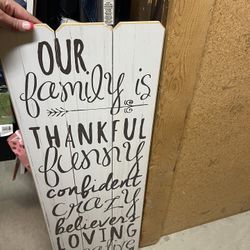 OUR
family is
THANKFUL
funny
confident
CRAZY
believers
LOVING